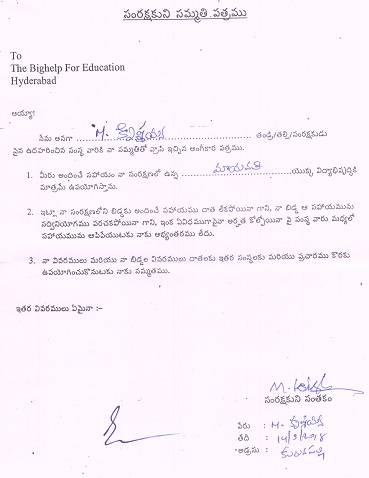 సంరక్షకుని సమ్మతి పత్రము
To
The Bighelp For Education
Hyderabad
అయ్యా!
నేను అనగా M. కృష్ణయ్య తండ్రి/తల్లి/సంరక్షకుడు
పైన ఉదహరించిన సంస్థ వారికి నా సమ్మతితో వ్రాసి ఇచ్చిన అంగీకార పత్రము.
1. మీరు అందించే సహాయం నా సంరక్షణలో ఉన్న మాయావతి యొక్క విద్యాభివృద్ధికి
మాత్రమే ఉపయోగిస్తాను.
2. ఇట్లా నా సంరక్షణలోని బిడ్డకు అందించే సహాయము దాత లేకపోయినా గాని, నా బిడ్డ ఆ సహాయమును
సద్వినియోగము పరచకపోయినా గాని, ఇంక ఏవిధముగానైనా అర్హత కోల్పోయినా పై సంస్థ వారు మధ్యలో
సహాయమును ఆపివేయుటకు నాకు అభ్యంతరము లేదు.
3. నా వివరములు మరియు నా బిడ్డల వివరములు దాతలకు ఇతర సంస్థలకు మరియు ప్రచారము కొరకు
ఉపయోగించుకొనుటకు నాకు సమ్మతము.
ఇతర వివరములు ఏమైనా :-
సంరక్షకుని సంతకం
పేరు : M. కృష్ణయ్య
తేది : 14/3/2018
అడ్రసు :